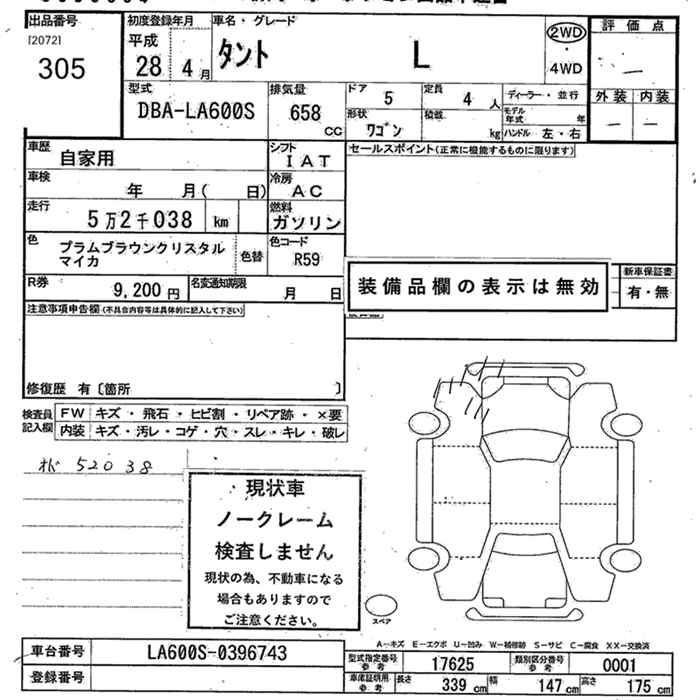 出品番号
[2072]
305
初度登録年月
平成
28年 4月
車名・グレード
タント L
2WD
・
4WD
評価点
－
外装 内装
－ －
型式
DBA-LA600S
排気量
658
CC
ドア
5
定員
4人
ディーラー・並行
形状
ワゴン
積載
kg
モデル年式 年
ハンドル 左・右
車歴
自家用
シフト
IAT
セールスポイント(正常に機能するものに限ります)
車検
年 月( 日)
冷房
AC
走行
5万2千038 km
燃料
ガソリン
色
プラムブラウンクリスタル
マイカ
色替
色コード
R59
R券
9,200円
名変通知期限
月 日
装備品欄の表示は無効
新車保証書
有・無
注意事項申告欄(不具合内容等は具体的に記入して下さい)
修復歴 有〔箇所 〕
検査員
記入欄
FW キズ・飛石・ヒビ割・リペア跡・×要
内装 キズ・汚レ・コゲ・穴・スレ・キレ・破レ
52038
現状車
ノークレーム
検査しません
現状の為、不動車になる
場合もありますので
ご注意ください。
スペア
A－キズ E－エクボ U－凹み W－補修跡 S－サビ C－腐食 XX－交換済
車台番号
LA600S-0396743
登録番号
型式指定番号
参考
17625
類別区分番号
参考
0001
車庫証明用
参考
長さ 339cm
幅 147cm
高さ 175cm